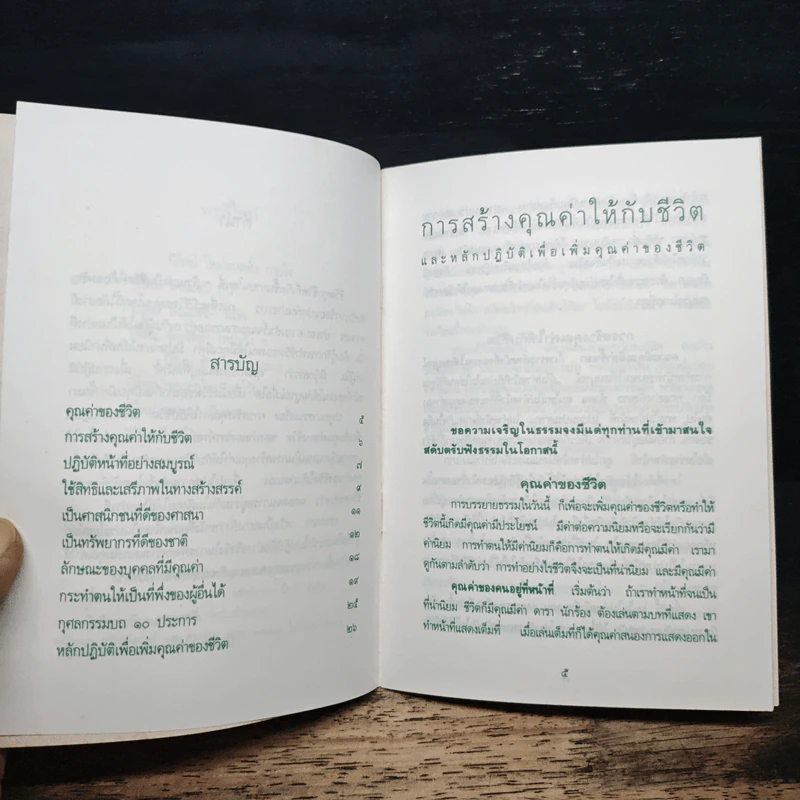 สารบัญ
คุณค่าของชีวิต ๕
การสร้างคุณค่าให้กับชีวิต ๖
ปฏิบัติหน้าที่อย่างสมบูรณ์ ๗
ใช้สิทธิและเสรีภาพในทางสร้างสรรค์ ๙
เป็นศาสนิกชนที่ดีของศาสนา ๑๑
เป็นทรัพยากรที่ดีของชาติ ๑๒
ลักษณะของบุคคลที่มีคุณค่า ๑๘
กระทำตนให้เป็นที่พึ่งของผู้อื่นได้ ๑๙
กุศลกรรมบถ ๑๐ ประการ ๒๕
หลักปฏิบัติเพื่อเพิ่มคุณค่าของชีวิต ๒๖
การสร้างคุณค่าให้กับชีวิต
และหลักปฏิบัติเพื่อเพิ่มคุณค่าของชีวิต
ขอความเจริญในธรรมจงมีแด่ทุกท่านที่เข้ามาสนใจ
สดับตรับฟังธรรมในโอกาสนี้
คุณค่าของชีวิต
การบรรยายธรรมในวันนี้ ก็เพื่อจะเพิ่มคุณค่าของชีวิตหรือทำให้
ชีวิตนี้เกิดมีคุณค่ามีประโยชน์ มีค่าต่อความนิยมหรือจะเรียกกันว่ามี
ค่านิยม การทำตนให้มีค่านิยมก็คือการทำตนให้เกิดมีคุณมีค่า เรามา
ดูกันตามลำดับว่า การทำอย่างไรชีวิตจึงจะเป็นที่น่านิยม และมีคุณมีค่า
คุณค่าของคนอยู่ที่หน้าที่ เริ่มต้นว่า ถ้าเราทำหน้าที่จนเป็น
ที่น่านิยม ชีวิตก็มีคุณมีค่า ดารา นักร้อง ต้องเล่นตามบทที่แสดง เขา
ทำหน้าที่แสดงเต็มที่ เมื่อเล่นเต็มที่ก็ได้คุณค่าสนองการแสดงออกใน
๕